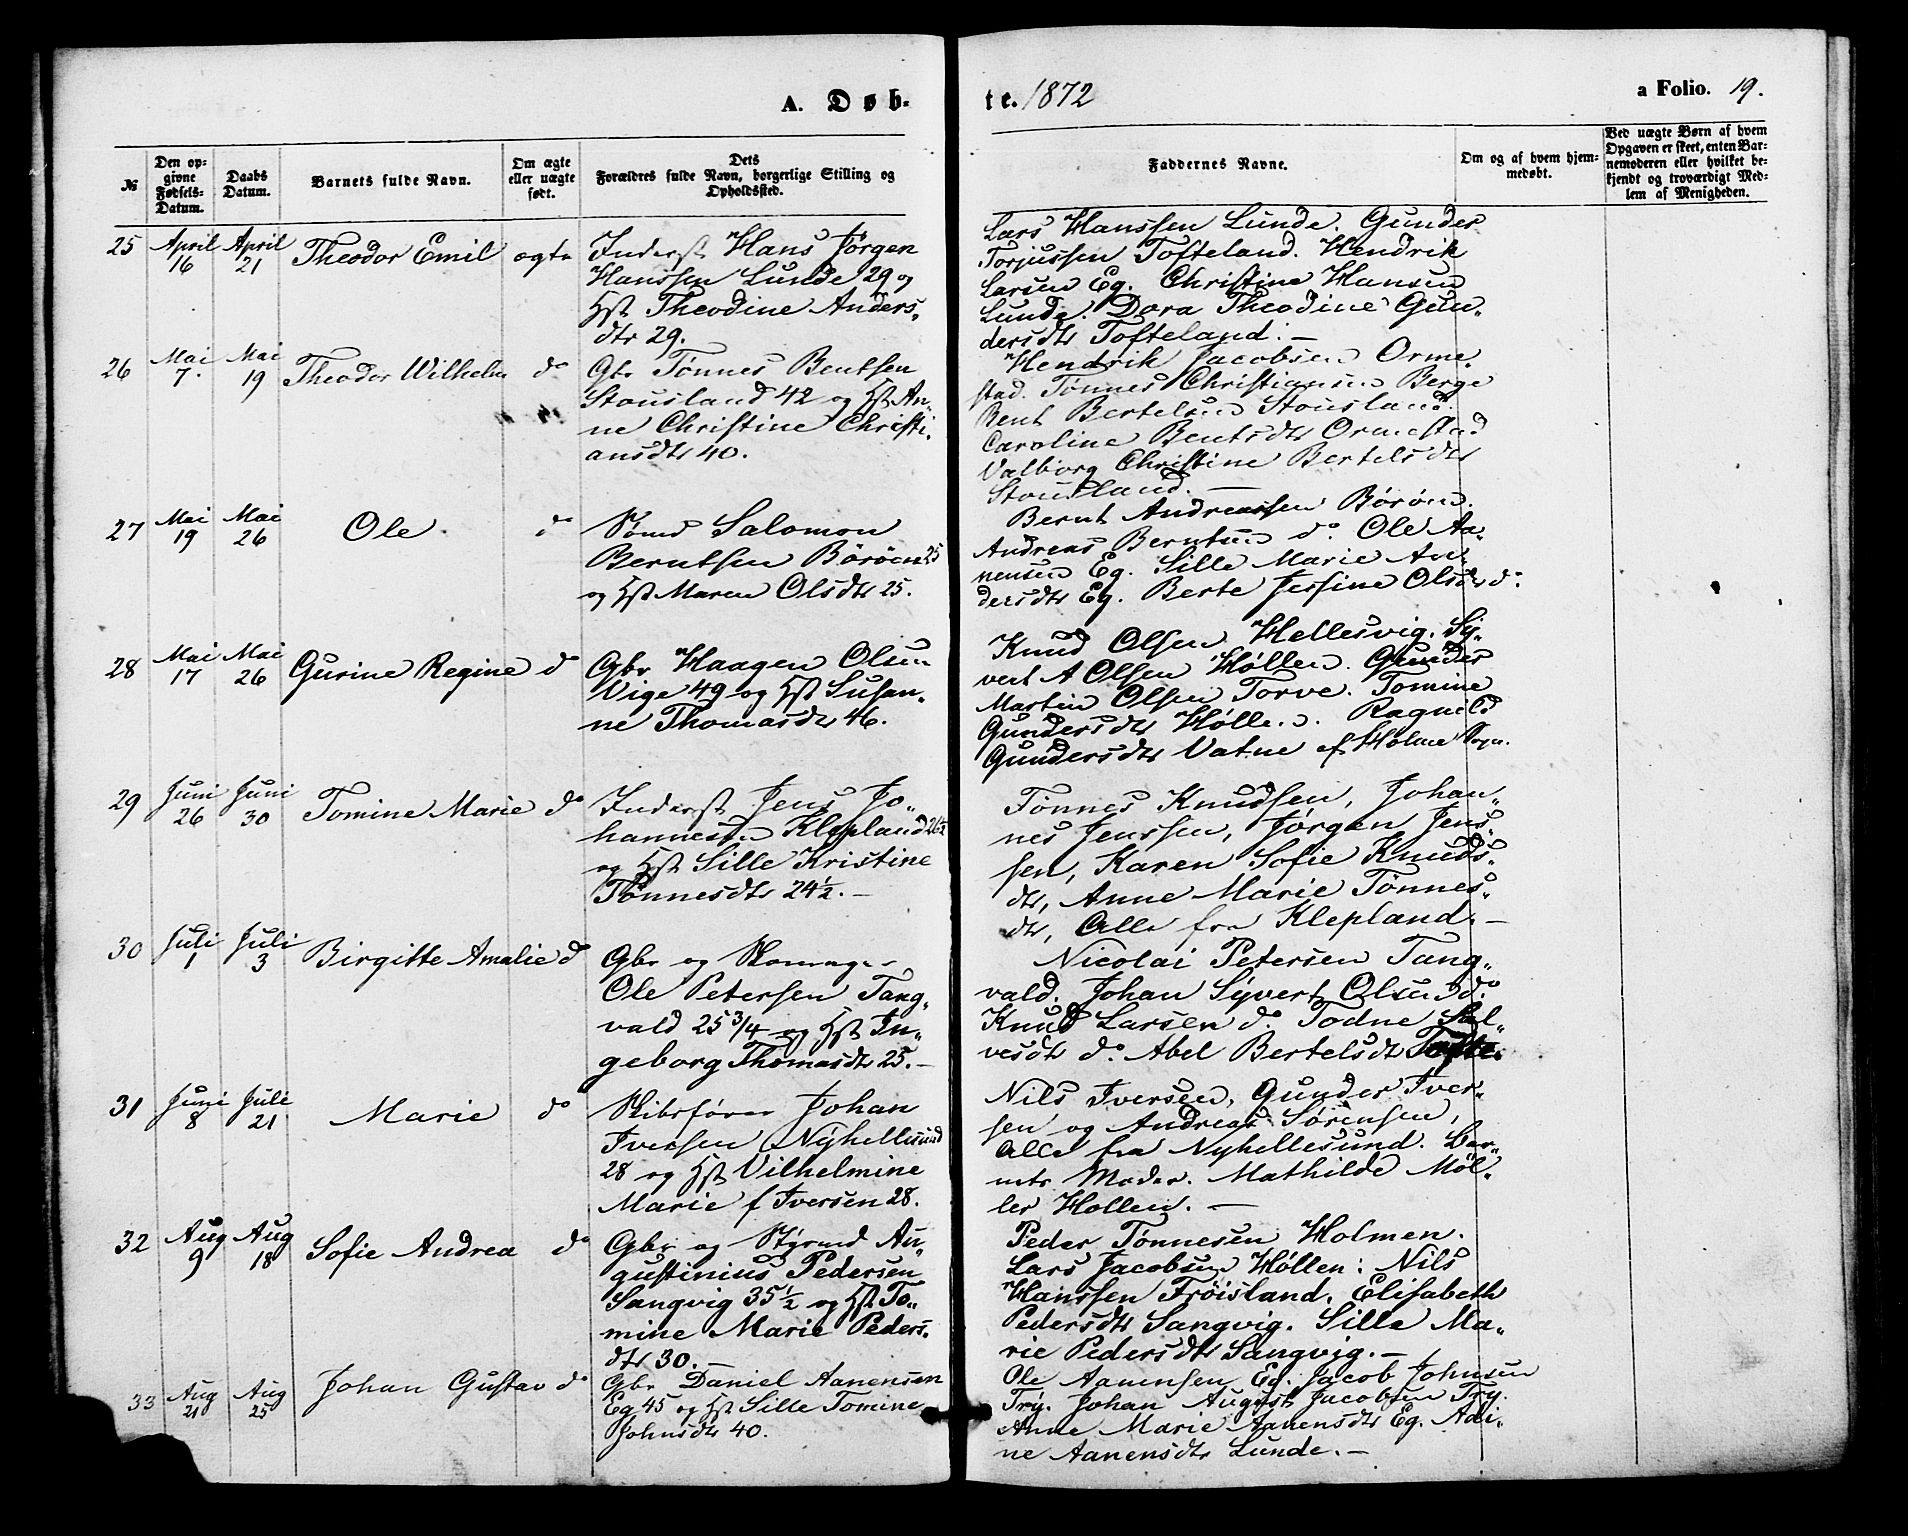 A. Døb-
te. 1872
a Folio. 19.
№
Den op-
givne
Fødsels-
Datum.
Daabs
Datum.
Barnets fulde Navn.
Om ægte
eller uægte
født.
Dets
Forældres fulde Navn, borgerlige Stilling og
Opholdssted.
Faddernes Navne.
Om og af hvem hjem-
medøbt.
Ved uægte Børn af hvem
Opgaven er skeet, enten Bar-
nemoderen eller hvilket be-
kjendt og troværdigt Med-
lem af Menigheden.
25 April 16 April 21 Theodor Emil ægte
Inderst Hans Jørgen
Hanssen Lunde 29 og
Hst Theodine Anders„
dtr 29.
Lars Hanssen Lunde. Gunder
Torjussen Tofteland. Hendrik
Larsen Eg. Christine Hansen
Lunde. Dora Theodine Gun„
dersdtr Tofteland. —
26 Mai 7. Mai 19 Theodor Wilhelm do
Gbr Tønnes Bentsen
Stousland 42 og Hst An„
ne Christine Christi„
ansdtr 40.
Hendrik Jacobsen Orme„
stad. Tønnes Christiansen Berge
Bent Bertelsen Stousland.
Caroline Bentsdtr Ormestad
Valborg Christine Bertelsdtr
Stousland. —
27 Mai 19 Mai 26 Ole do
Sømd Salomon
Berntsen Børøen 25
og Hst Maren Olsdtr 25.
Bernt Andreassen Børøen.
Andreas Berntsen do. Ole Aa„
nensen Eg. Sille Marie An„
dersdtr Eg. Berte Jessine Olsdtr do.
28 Mai 17 Mai 26 Gurine Regine do
Gbr Haagen Olsen
Vige 49 og Hst Susan„
ne Thomasdtr 46.
Knud Olsen Hellesvig. Sy„
vert A Olsen Høllen. Gunder
Martin Olsen Torve. Tomine
Gundersdtr Høllen. Ragnild
Gundersdtr Vatne af Holme Sogn.
29 Juni 26 Juni 30 Tomine Marie do
Inderst Jens Jo„
hannesen Klepland 26½
og Hst Sille Kristine
Tønnesdtr 24½. —
Tønnes Knudsen, Johan„
nes Jenssen, Jørgen Jens„
sen, Karen Sofie Knuds„
dtr, Anne Marie Tønnes„
dtr, Alle fra Klepland. —
30 Juli 1 Juli 3 Birgitte Amalie do
Gbr og Skomager
Ole Petersen Tang„
vald 25 3/4 og Hst In„
geborg Thomasdtr 25. —
Nicolai Petersen Tang„
vald. Johan Syvert Olsen do.
Knud Larsen do. Todne Sal„
vesdtr do. Abel Bertelsdtr Tofte.
31 Juni 8 Juli 21 Marie do
Skibsfører Johan
Iversen Nyhellesund
28 og Hst Vilhelmine
Marie f Iversen 28.
Nils Iversen, Gunder Iver„
sen og Andreas Sørensen,
alle fra Nyhellesund. Bar„
nets Moder. Mathilde Møl„
ler Hollen. —
32 Aug 9 Aug 18 Sofie Andrea do
Gbr og Styrmd Au„
gustinius Pedersen
Langvig 35½ og Hst To„
mine Marie Peders„
dtr 30. —
Peder Tønnesen Holmen.
Lars Jacobsen Høllen. Nils
Hanssen Frøisland. Elisabeth
Pedersdtr Langvig. Sille Ma„
rie Pedersdtr Langvig. —
33 Aug 21 Aug 25 Johan Gustav do
Gbr Daniel Aanensen
Eg 45 og Hst Sille Tomine
Johnsdtr 40.
Ole Aanensen Eg. Jacob Johnsen
Try. Johan August Jacobsen Try.
Anne Marie Aanensdtr Eg. Adi„
ne Aanensdtr Lunde. —